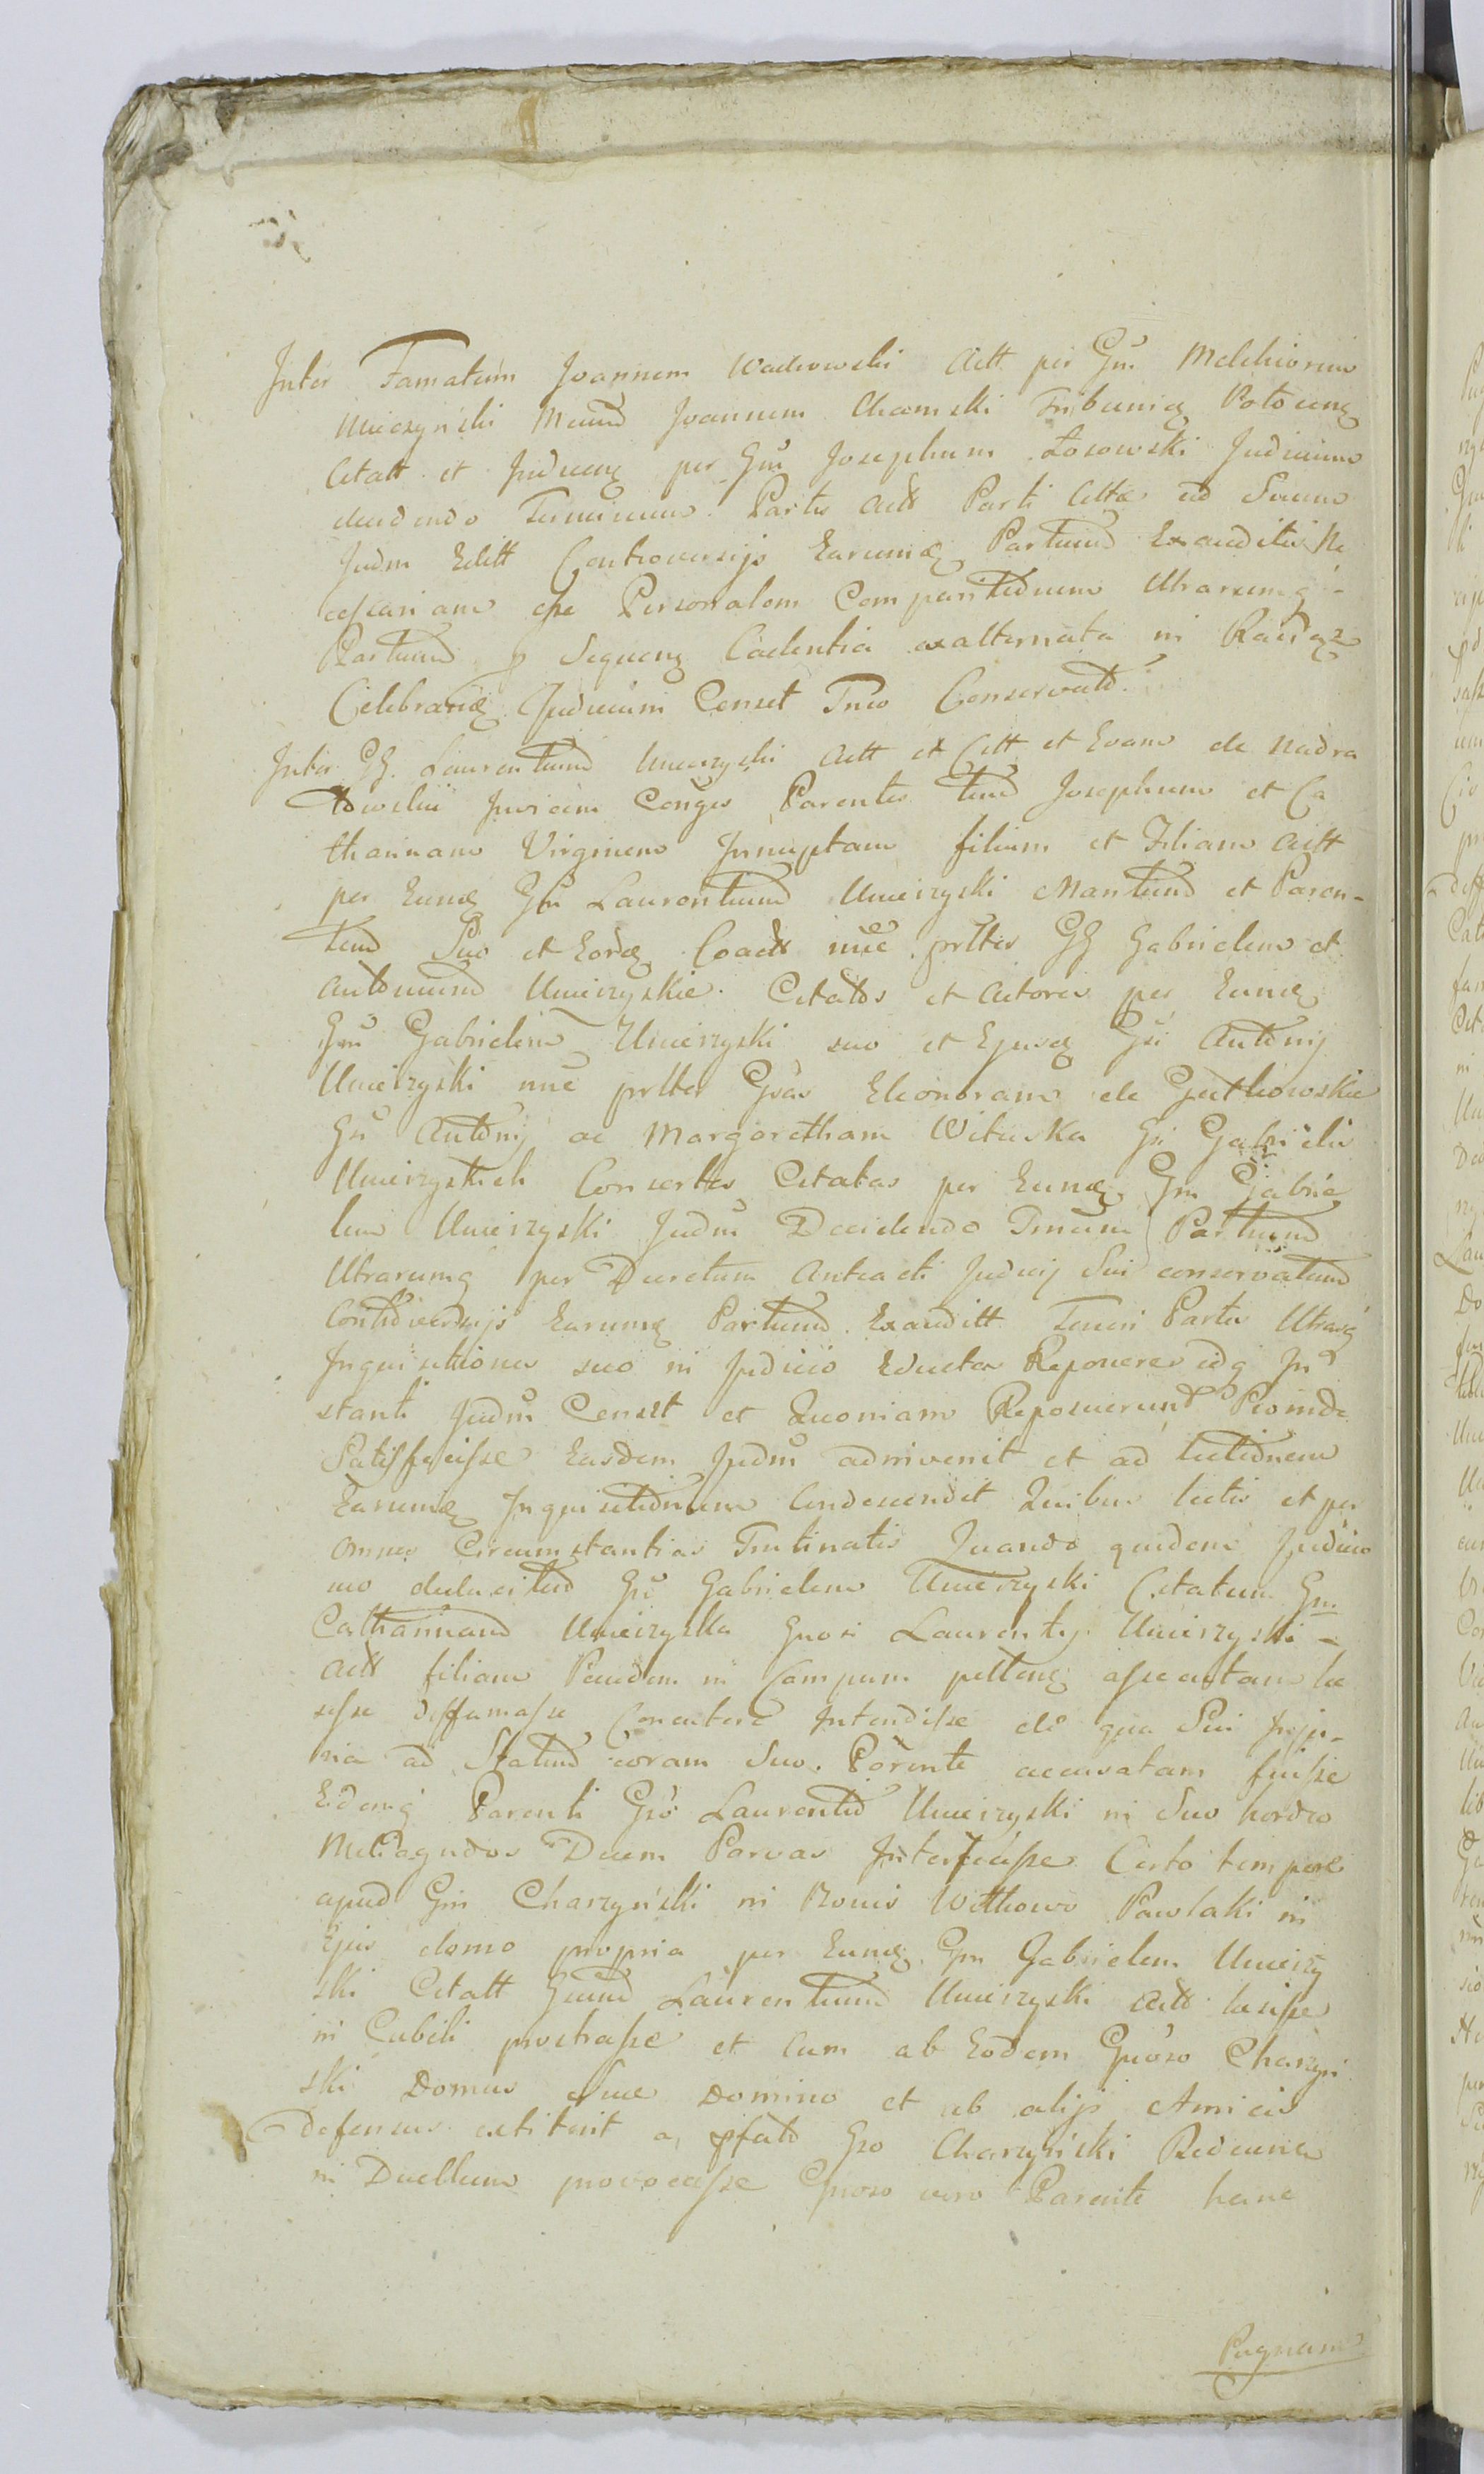 Inter Famatum Joannem Wadrowski Actt per Gm Melchiorem
Umieszynski Joannem Chamski Tribunid
Citatt et per Gm Josephum Łosowski Judicium
Terminum Partis Actt Parti Cittae ad Suum
Judm Controversijs Earumq Partium Exauditis Ne
cessariam esse Personalem Comparitionem Utrarumq
Partium p Sequens Cadentia exalternata in Raciąz
Celebranda Judicium Censet Tmo Conservato.
Inter GG. Laurentium Umierzyski Actt et Citt et Evam de Nadra
towskie Juridim Conges Parentes tum Josephum et Ca
tharinam Virginem Innuptam filium et Filiam Actt
per Eund Gm Laurentium Umierzyski Maritum et Paren-
tem Suo et Eord Coactt nne prltes GG Gabrielem et
Antonium Umierzyskie. Citatos et Actores per Eund
Gm Gabrielem Umierzyski suo et Ejusd Gsi Antonij
Umierzyski nne prltes Gsas Eleonoram de Gutkowskie
Gsi Antonij ac Margaretham Wituska Gsi Gabrielis
Umierzyskich Consortes Citatas per Eund Gm Gabrie
lem Umierzyski Judm Decidendo Tmum Partium
Utrarumq per Decretum Anteacti Judicij Sui conservatum
Controversijs Earumq Partium Exauditt Teneri Partes Utrasq
Inquisitiones suo in Judicio Eductas Reponere idq In
stanti Judm Censet et Quoniam Reposuerunt Proinde
Satisfecisse Easdem Judm adinvenit et ad lectionem
Earumd Inquisitionum Condescendit Quibus lectis et per
omnes Circumstantias Trutinatis Quando quidem Judicio
suo deducitur Gm Gabrielem Umierzyski Citatum Gm
Catharinam Umierzyska Gnosi Laurentij Umierzyski -
Actt filiam in Campum assecutam lae
sisse Diffamasse Intendisse de qua Sui Inju-
ria ad Statum coram Suo Parente accusatam fuisse
Edemq Parenti Gso Laurentio Umierzyski in Suo hordeo
Meleagridos Decem Parvas Interfecisse Certo tempore
apud Gm Charzyński in Bonis Witkowo Pawlaki in
Ejus domo propria per Eund Gm Gabrielem Umierzy
ski Citatt Gnum Laurentium Umierzyski Actt laesisse
in Cubili prostrasse et Cum ab Eodem Gnoso Charzyń
ski Domus Suae Domino et ab alijs Amicis
Defensus extiterit a pfato Gso Charzyński
in Duellum provocasse Gnoso vero Parente hanc
Pugnam